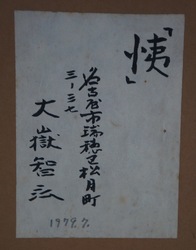 「姨」
名古屋市瑞穂区松月町
三ー三七
大嶽智弘
1979.7.